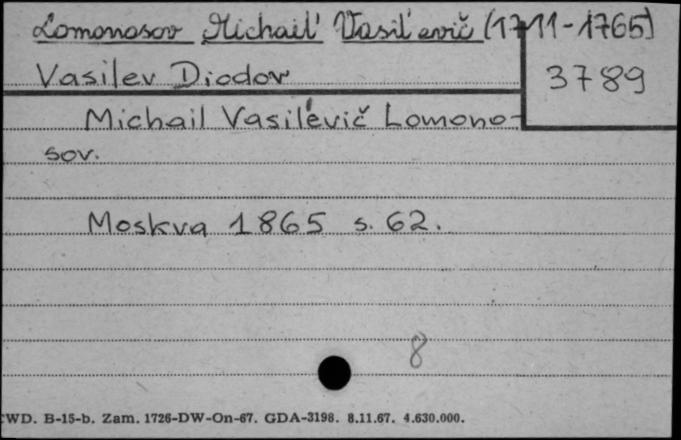 Lomonosov Michail Vasil'evič (1711-1765)
Vasilev Diodor
3789
Michail Vasil'evič Lomono-
sov.
Moskva 1865 s. 62.
8
CWD. B-15-b. Zam. 1726-DW-On-67. GDA-3198. 8.11.67. 4.630.000.